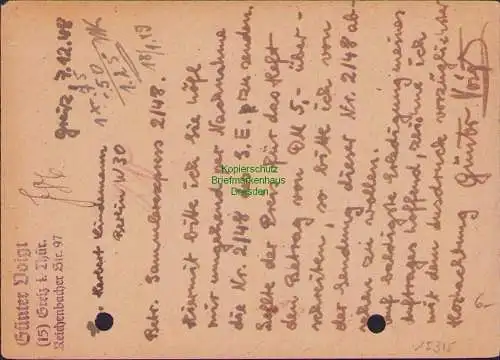 Günter Voigt
(15) Greiz i. Thür.
Reichenbacher Str. 97
Greiz, 7.12.48
Herbert Lindemann
Berlin W 30
Betr. Sammlerexpress 2/48.
Hiermit bitte ich Sie höfl.
mir umgehend per Nachnahme
die Nr. 2/48 des S.E. zu senden.
Sollte der Preis für das Heft
den Betrag von DM 5,- über-
schreiten, so bitte ich von
der Sendung dieser Nr. 2/48 ab-
sehen zu wollen.
Auf baldigste Erledigung meines
Auftrages hoffend, zeichne ich
mit dem Ausdruck vorzüglichster
Hochachtung Günter Voigt
18/1.49
Kopierschutz
Briefmarkenhaus
Dresden